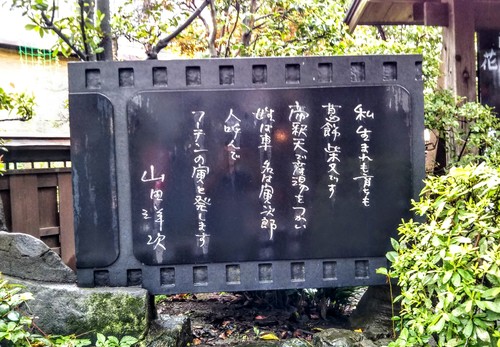 私 生まれも育ちも
葛飾 柴又です
帝釈天で産湯をつかい
姓は車 名は寅次郎
人呼んで
フーテンの寅と発します
山田洋次
花